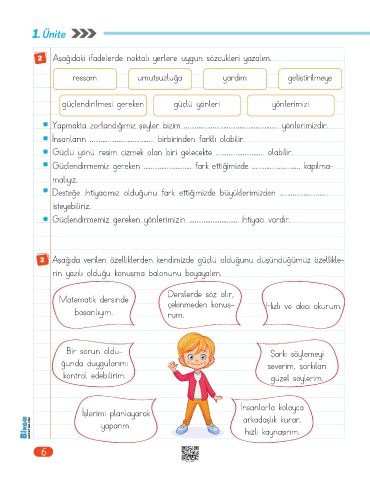 1. Ünite
2 Aşağıdaki ifadelerde noktalı yerlere uygun sözcükleri yazalım.
ressam umutsuzluğa yardım geliştirilmeye
güçlendirilmesi gereken güçlü yönleri yönlerimizi
Yapmakta zorlandığımız şeyler bizim .................................. yönlerimizdir.
İnsanların .................................. birbirinden farklı olabilir.
Güçlü yönü resim çizmek olan biri gelecekte .......................... olabilir.
Güçlendirmemiz gereken .......................... fark ettiğimizde .......................... kapılma-
malıyız.
Desteğe ihtiyacımız olduğunu fark ettiğimizde büyüklerimizden ..........................
isteyebiliriz.
Güçlendirmemiz gereken yönlerimizin .......................... ihtiyacı vardır.
3 Aşağıda verilen özelliklerden kendimizde güçlü olduğunu düşündüğümüz özellikle-
rin yazılı olduğu konuşma balonunu boyayalım.
Matematik dersinde
başarılıyım.
Derslerde söz alır,
çekinmeden konuş-
rum.
Hızlı ve akıcı okurum.
Bir sorun oldu-
ğunda duygularımı
kontrol edebilirim.
Şarkı söylemeyi
severim, şarkıları
güzel söylerim.
İşlerimi planlayarak
yaparım.
İnsanlarla kolayca
arkadaşlık kurar,
hızlı kaynaşırım.
Bingo
6